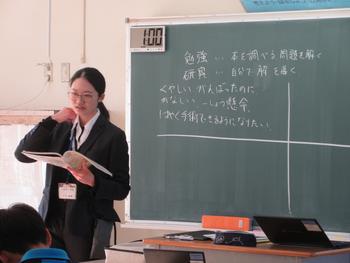 1:00
勉強 … 本を調べる 問題を解く
研究 … 自分で 解を導く
くやしい がんばったのに
かなしい 一しょう懸命
はやく手術できるようになりたい。